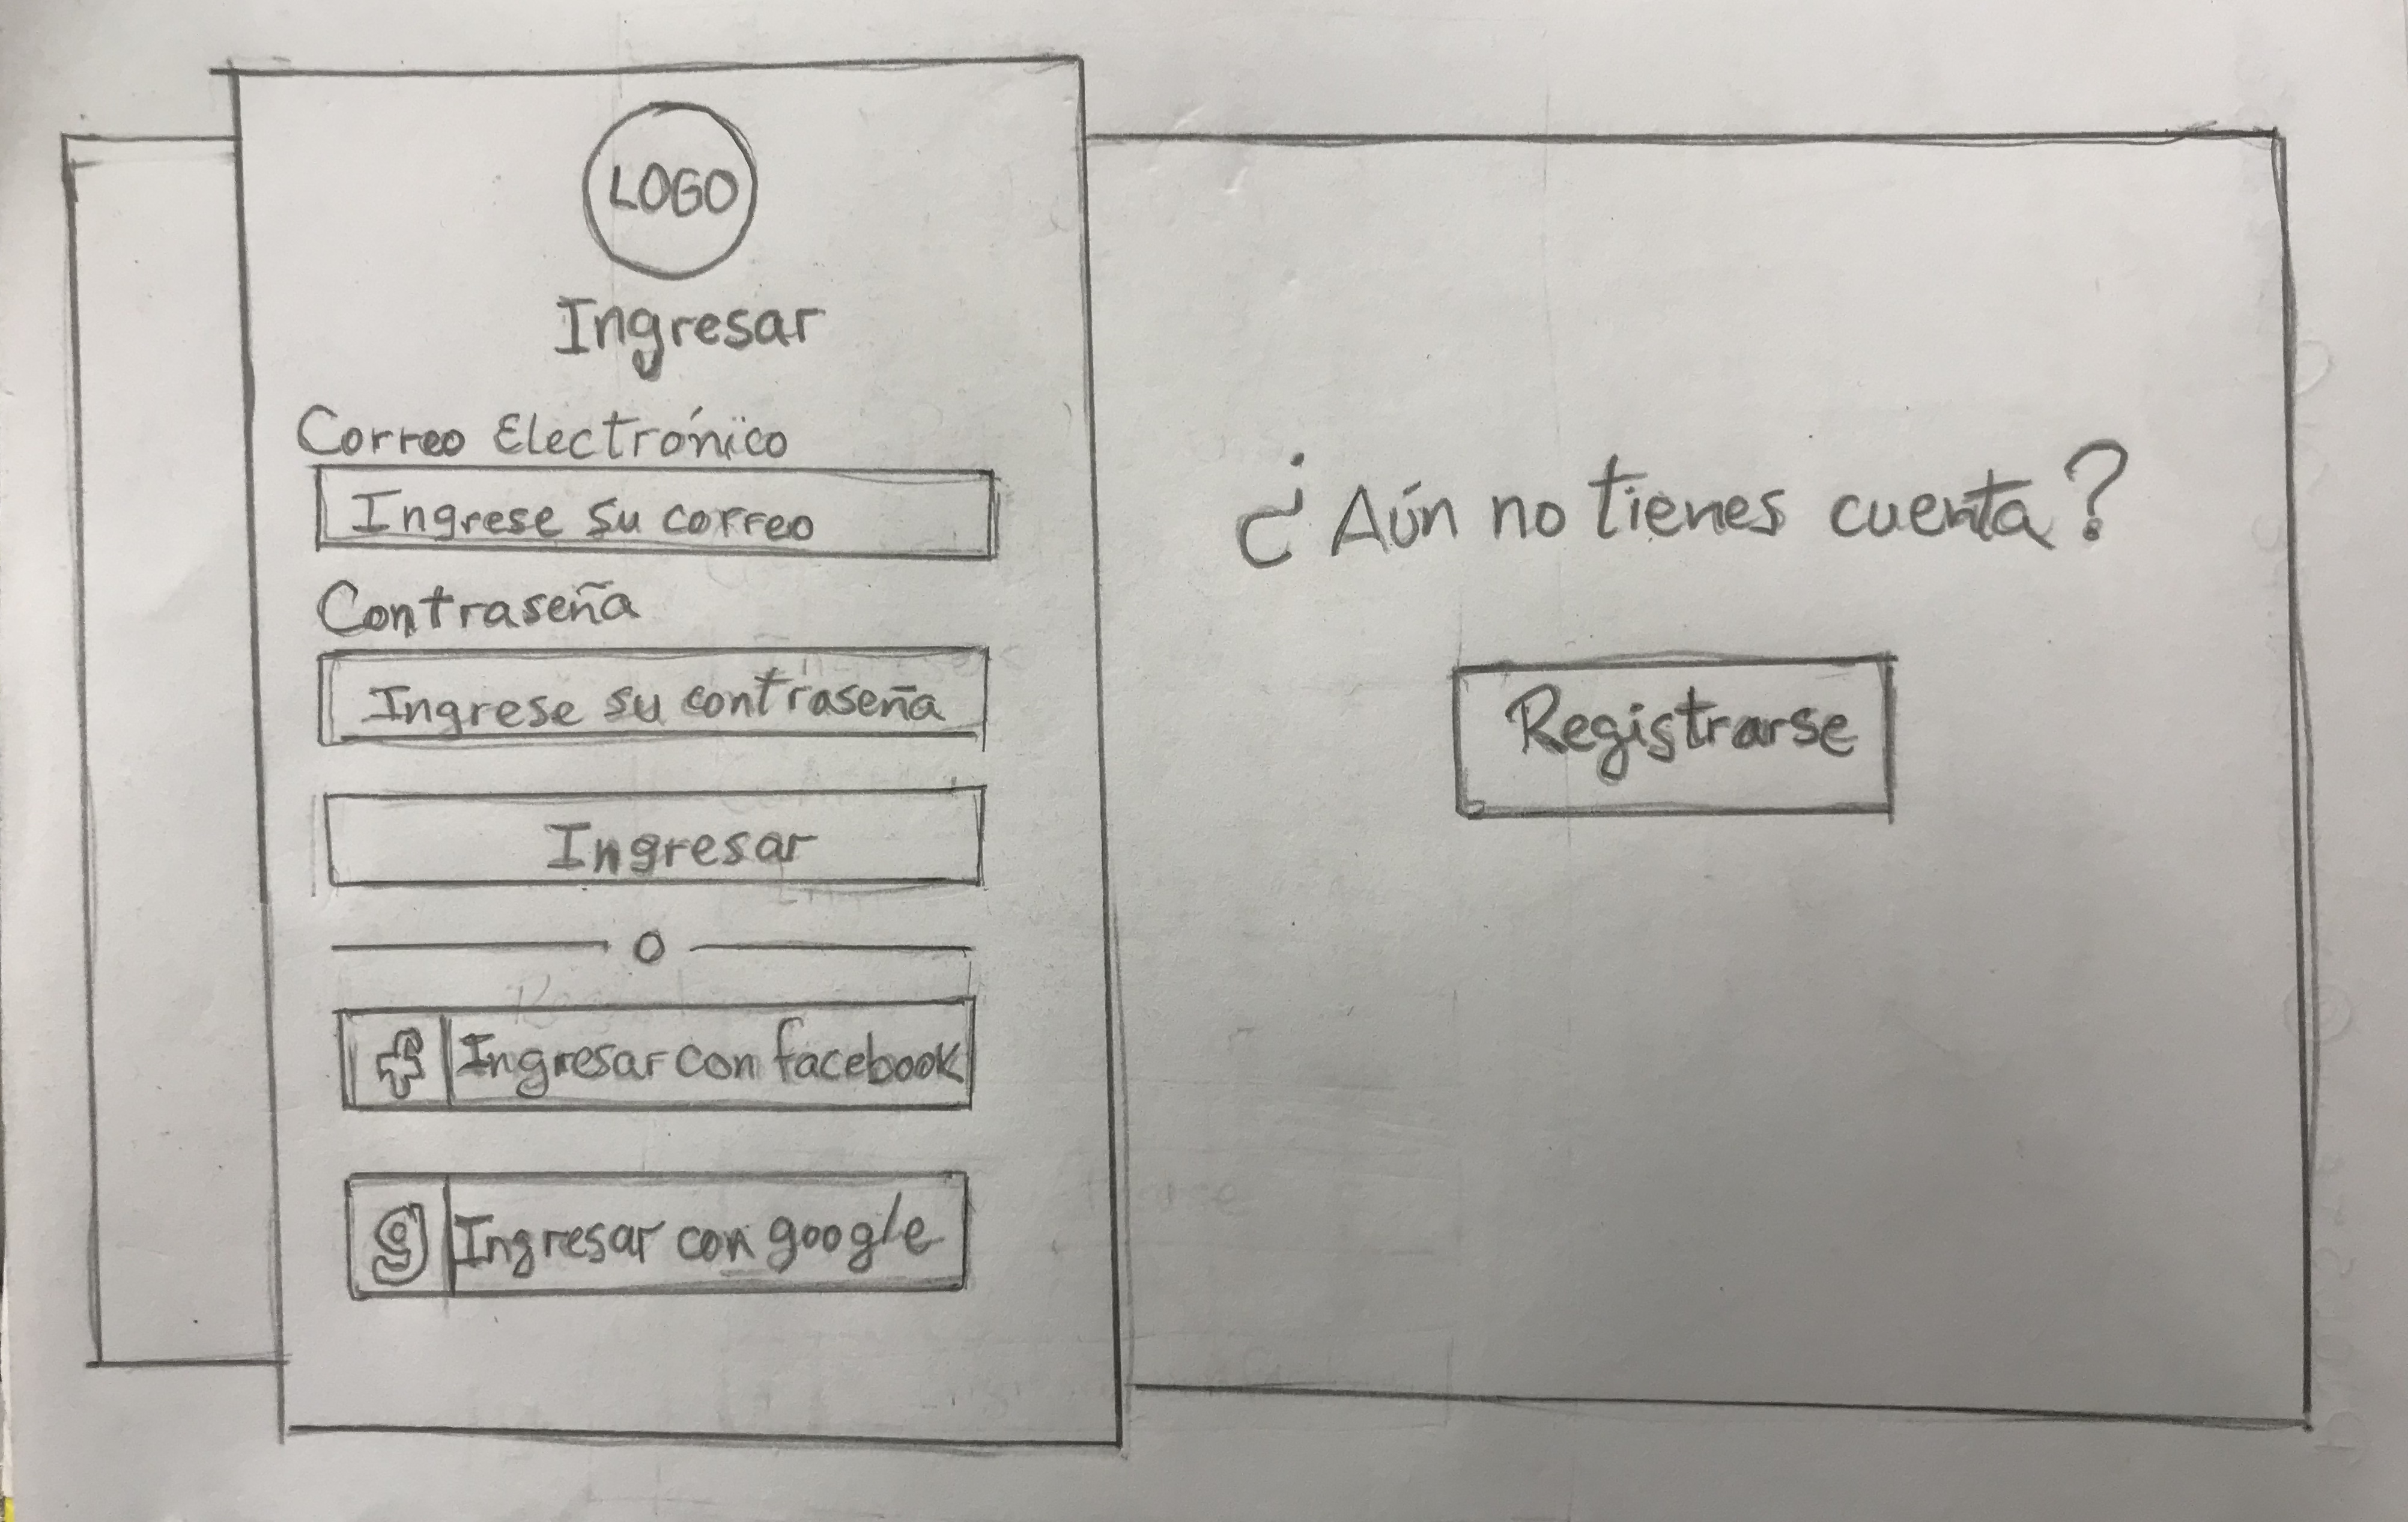 LOGO
Ingresar
Correo Electrónico
Ingrese su correo
Contraseña
Ingrese su contraseña
Ingresar
O
f Ingresar con facebook
g Ingresar con google
¿Aún no tienes cuenta?
Registrarse